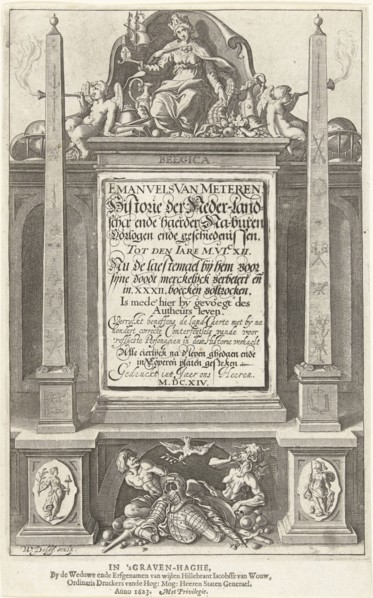 BELGICA
EMANUELS VAN METEREN
Historie der Neder-land-
scher ende haerder Na-buren
Oorlogen ende geschiedenissen.
TOT DEN IARE M.VI.C XII.
Nu de laestemael by hem voor
syne doodt merckelyck verbetert en̄
in XXXII. boecken voltrocken.
Is mede hier by gevoegt des
Autheurs leven.
Verryckt beneffens de land-Caerte met by na
hondert correcte Conterfeytsels vande voor-
treflicste Personagien in dese historie verhaelt
Alle cierlyck na d'leven gedaen ende
in Coperen platen gesneden
Gedruckt int Jaer ons Heeren.
M.DC.XIV.
IN 's GRAVEN-HAGHE,
By de Weduwe ende Erfgenamen van wijlen Hillebrant Iacobssz van Wouw,
Ordinaris Druckers vande Hog: Mog: Heeren Staten Generael.
Anno 1623. Met Privilegie.